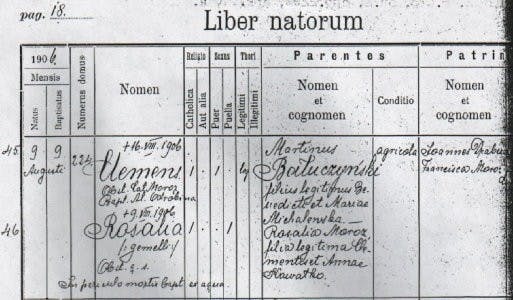 pag. 18.
Liber natorum
1906.
Mensis
Natus
Baptisatus
Numerus domus
Nomen
Religio
Catholica
Aut alia
Sexus
Puer
Puella
Thori
Legitimi
Illegitimi
Parentes
Nomen
et
cognomen
Conditio
Patrin
Nomen
et
cognomen
45 9 9 224 +16. VIII. 1906 Martinus agricola Joannes
Augusti Clemens 1 . 1 . Bałuczyński Francisca Moroz
Obst. Moroz filius legitimus Be
Bapt. nedicti et Mariae
+9. VIII. 1906 Michalewska —
46 Rosalia 1 . . 1 Rosalia Moroz
(gemelli) filia legitima Cle
Obst. q. s. mentis et Annae
In periculo mortis bapt. ex aqua Kawatko.